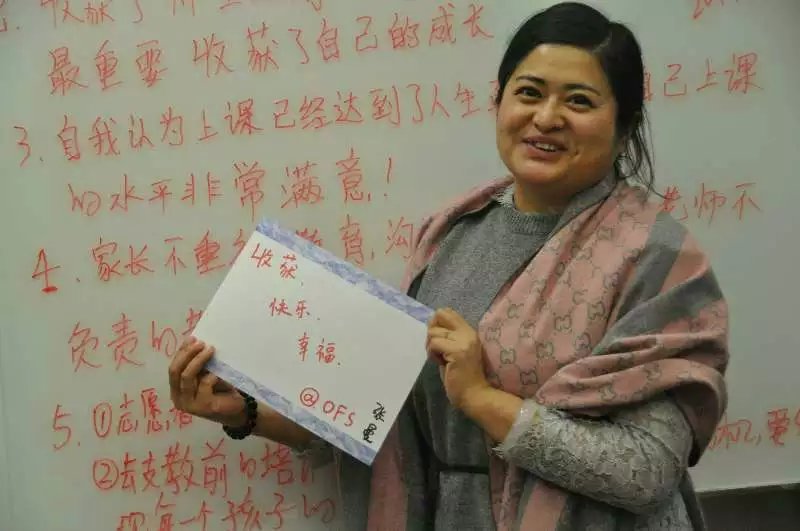 最重要收获了自己的成长
3.自我认为上课已经达到了人生 自己上课
的水平非常满意!
4.家长不重 教育,沟 老师不
负责的
5.①志愿者
②去支教前的培
每一个孩子的
收获.
快乐.
幸福.
@OFS
张曼